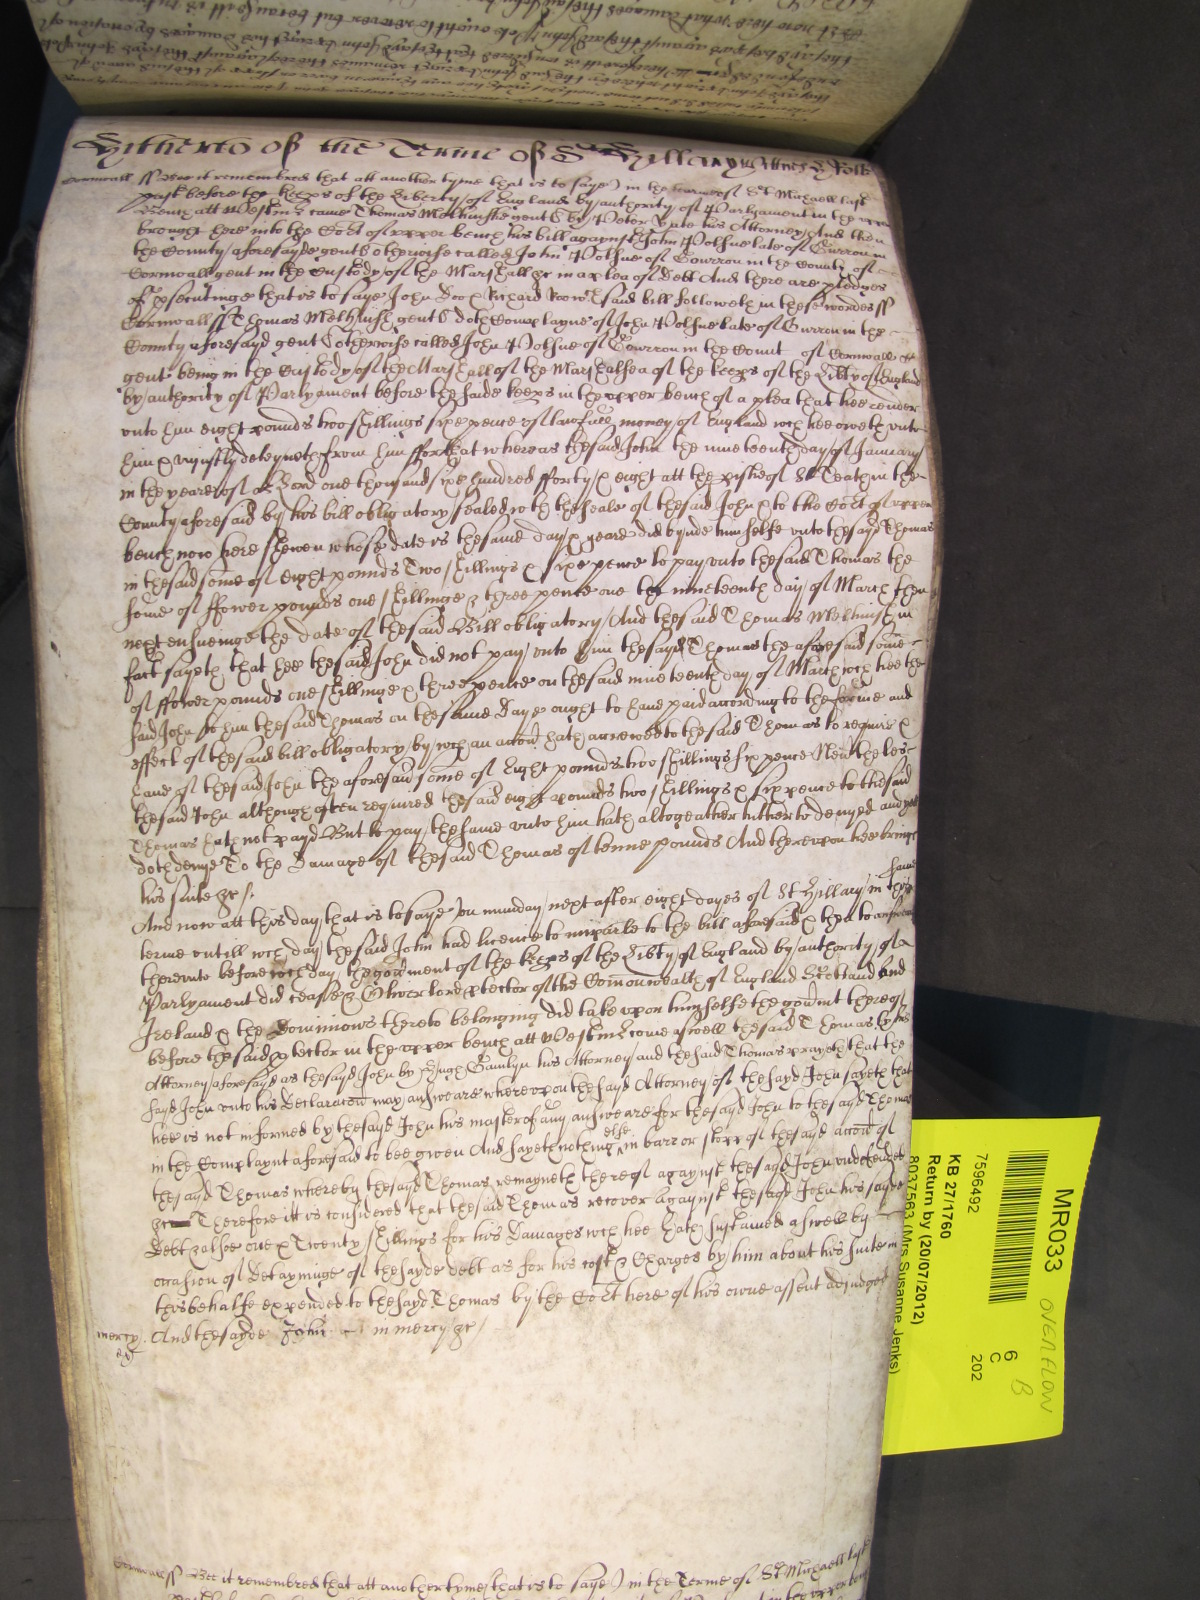 Hitherto of the Terme of St Hillary Wittnes H Rolle
Cornwall ss Bee it remembred that att another tyme that is to saye) in the terme of St Michaell last
past before the keeps of the Liberty of England by authority of Parlyament in the upper
Bench att Westmr came Thomas Melhuishe gent by Peter his Attorney And then
brought here into the Cort of upper bench his bill against John Polhue late of Gurron in
the County aforesayde gent otherwise called John Polhue of Gourron in the County of
Cornwall gent in the Custody of the Marshall &c in a plea of debt And there are pledges
of psecutinge that is to saye John Doo & Richard Roo wch said bill followeth in these wordes ss
Cornwall ss Thomas Melhuish gent doth Complayne of John Polhue late of Gurron in the
County aforesayd gent otherwise called John Polhue of Gourron in the Count of Cornwall
gent being in the Custody of the Marshall of the Marshalsea of the keeps of the Libty of England
by authority of Parlyament before the saide keeps in the upper bench of a plea that hee render
unto him eight pounds two shillings sixe pence of lawfull money of England wch hee oweth unto
him & uniustly deteyneth from him ffor that whereas the said John the nineteenth day of January
in the yeare of or Lord one thousand sixe hundred fforty & eight att the pishe of St Teath in the
County aforesaid by his bill obligatory sealed wth the seale of the said John & to the Cort of upper
bench now here shewen whose date is the same day & yeare did bynde himselfe unto the sayd Thomas
in the said some of eight pounds Two shillings & sixe pence to pay unto the said Thomas the
some of ffower pounds one shillinge & three pence one the nineteenth day of March then
next ensueinge the date of the said Bill obligatory And the said Thomas Melhuish in
fact sayeth that hee the said John did not pay unto him the sayd Thomas the aforesaid some
of ffower pounds one shillinge & three pence on the said nineteenth day of March wch hee the
said John to him the said Thomas on the same Daye ought to have paid according to the forme and
effect of the said bill obligatory by wch an accon hath accrewed to the said Thomas to require &
have of the said John the aforesaid some of Eight pounds two shillings six pence Nevrthelesse
the said John although often required the said eight pounds two shillings & sixpence to the said
Thomas hath not payd But to pay the same unto him hath altogeather hitherto denyed and yet
doth denye To the Damage of the said Thomas of tenne pounds And thereupon hee bringes
his suite &c
And now att this day that is to saye on munday next after eight dayes of St Hillary in this same
terme untill wch day the said John had licence to imparle to the bill aforesaid & then to answeare
thereunto before wch day the govrment of the keeps of the Libty of England by authority of
Parlyament did cease & Oliver lord ptector of the Comonwealth of England Scotland and
Ireland & the Dominions thereto belonging did take upon himselfe the govrmt thereof
before the said ptector in the upper bench att Westmr come aswell the said Thomas by his
Attorney aforesayd as the sayd John by Hugh Gamlyn his Attorney and the said Thomas prayeth that the
sayd John unto his declaracon may answeare whereupon the sayd Attorney of the sayd John sayeth that
hee is not informed by the sayd John his master of any answeare for the sayd John to the sayd Thomas
in the Complaynt aforesaid to bee given And sayeth nothing else in barr or stopp of the sayd accon of
the sayd Thomas whereby the sayd Thomas remayneth thereof against the sayd John undefended
&c Therefore itt is considered that the said Thomas recover against the sayd John his sayde
Debt & alsoe one & Twenty shillings for his Damages wch hee hath sustained aswell by
occasion of Detayninge of the sayde debt as for his costs & Charges by him about his suite in
this behalfe expended to the sayd Thomas by the Cort here of his owne assent adiudged
mercy And the sayde John in mercy &c
Cornwall ss Bee it remembred that att another tyme (that is to saye) in the Terme of St Michaell last
MR033
OVERFLOW
6
B
C
202
7596492
KB 27/1760
Return by (20/07/2012)
8037563 (Mrs Susanne Jenks)